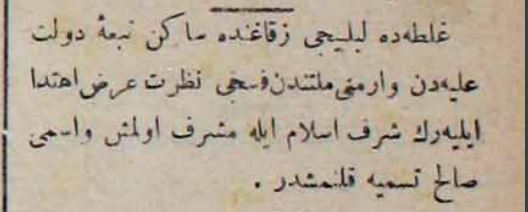 غلطه‌ده لبلبیجی زقاغنده ساكن تبعهٔ دولت
علیه‌دن وارمنی ملتندن نظرت عرض اهتدا
ایلیه‌رك شرف اسلام ایله مشرف اولمش واسمی
صالح تسمیه قلنمشدر .